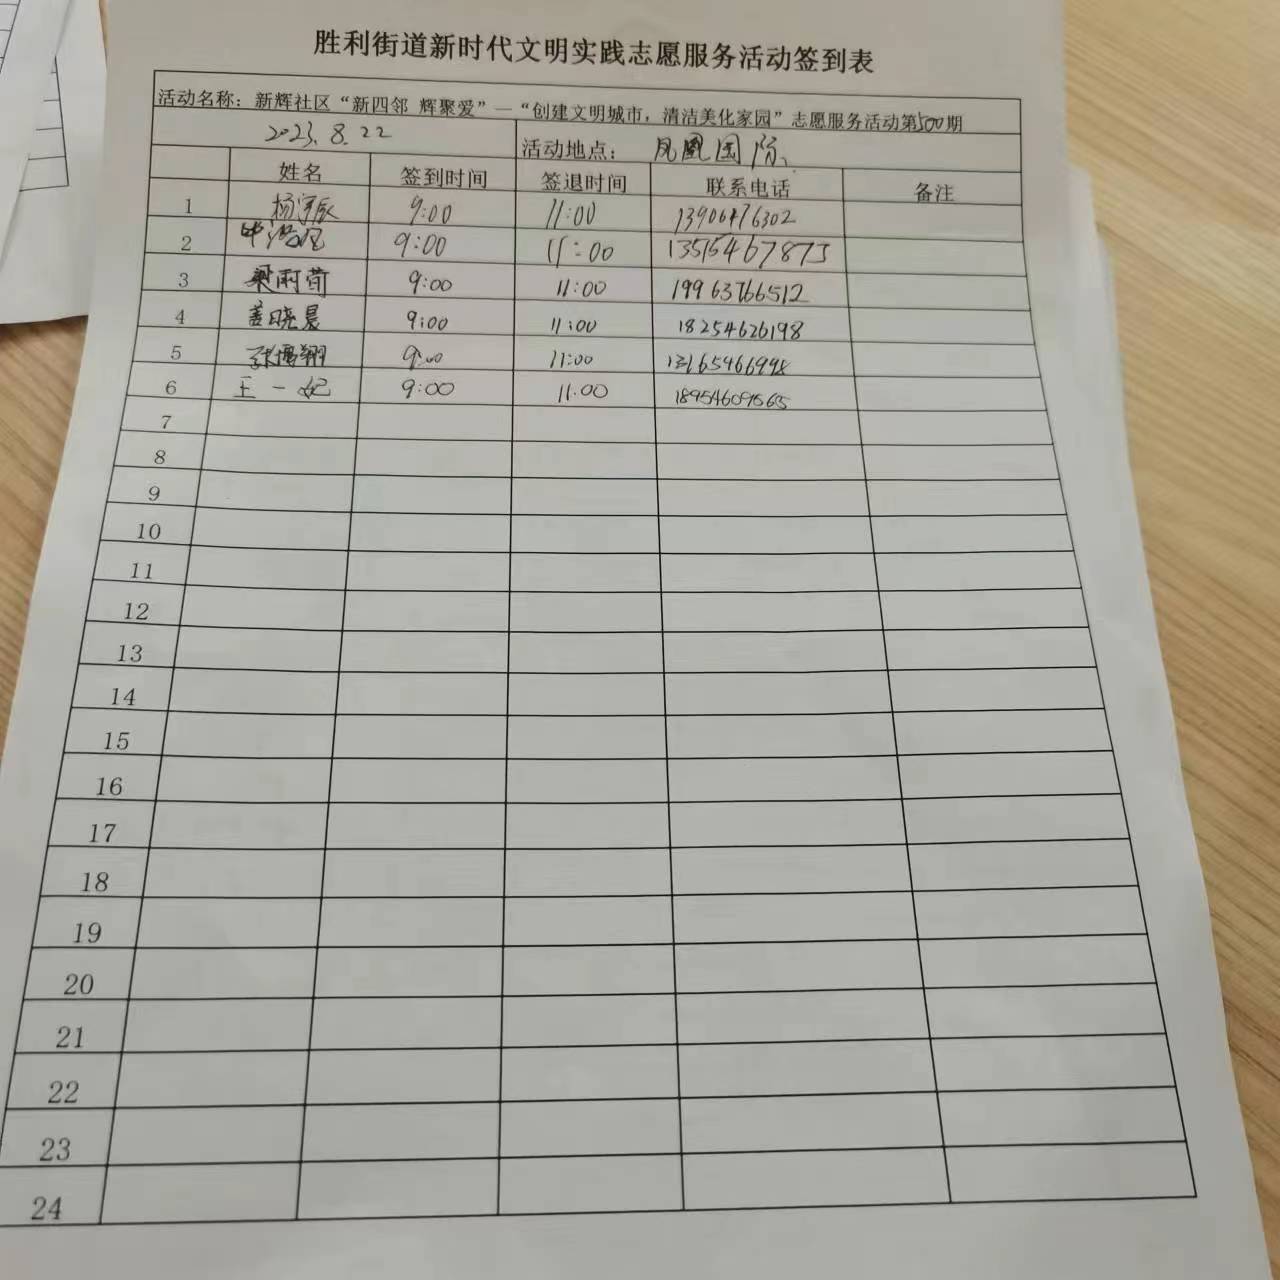 胜利街道新时代文明实践志愿服务活动签到表
活动名称：新辉社区“新四邻 辉聚爱”—“创建文明城市，清洁美化家园”志愿服务活动第500期
2023.8.22 活动地点： 凤凰国际
姓名 签到时间 签退时间 联系电话 备注
1 9:00 11:00 13906476302
2 9:00 11:00 13515467873
3 梁雨荷 9:00 11:00 19963766512
4 姜晓晨 9:00 11:00 18254626198
5 张博翔 9:00 11:00
6 王一妃 9:00 11.00
7
8
9
10
11
12
13
14
15
16
17
18
19
20
21
22
23
24